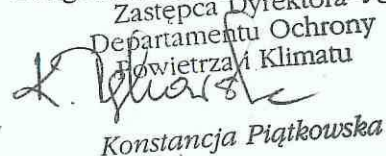 Zastępca Dyrektora
Departamentu Ochrony
Powietrza i Klimatu
Konstancja Piątkowska